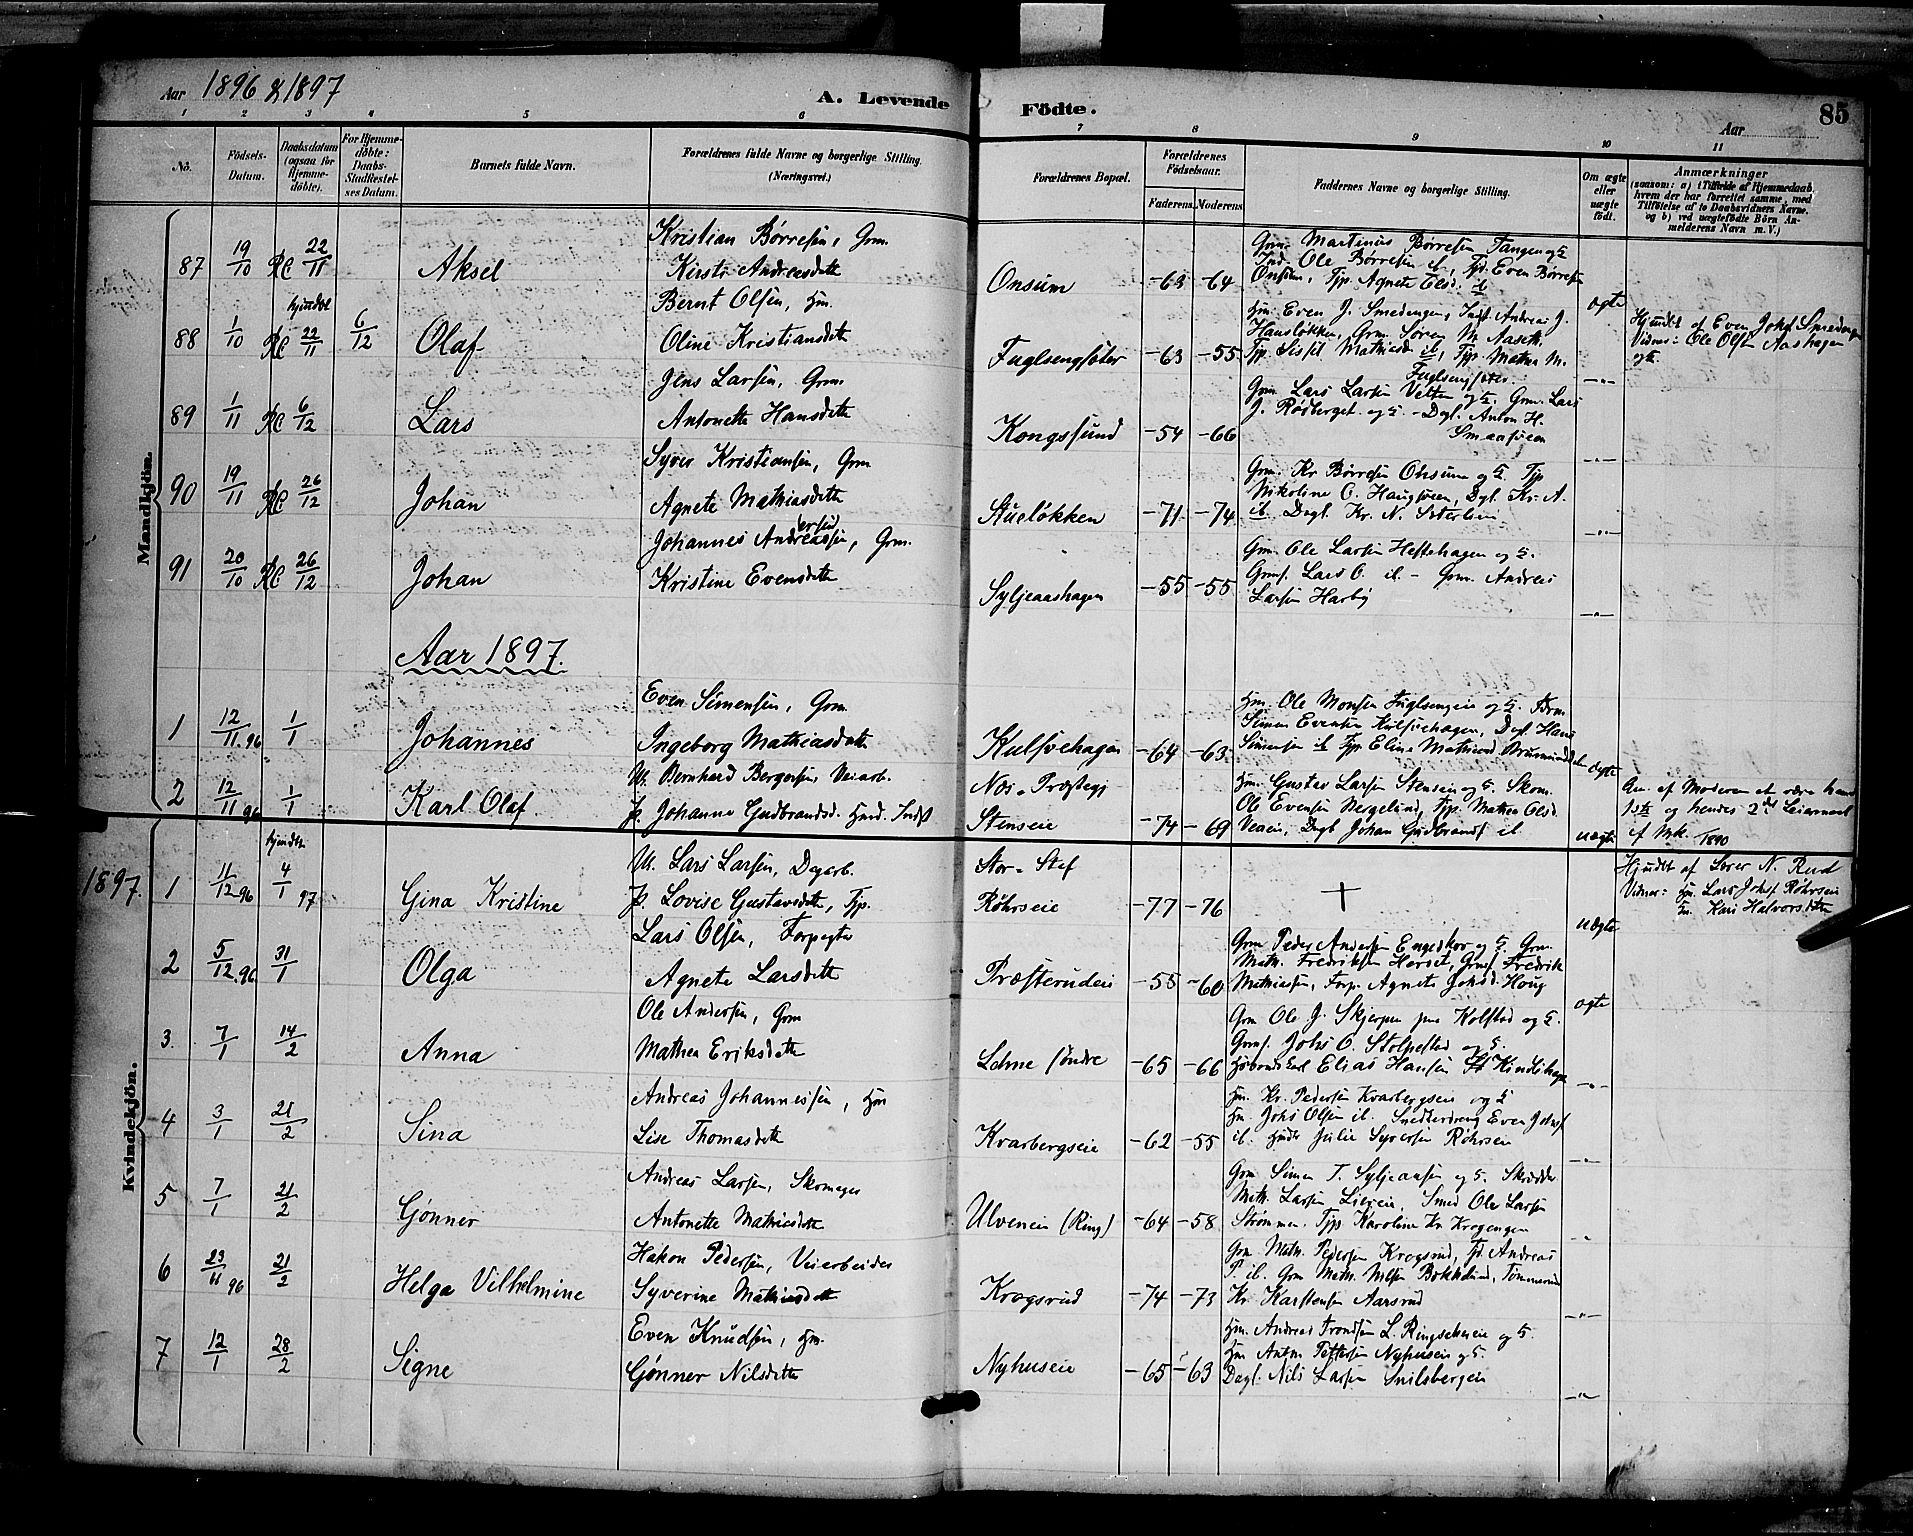 Aar 1896 & 1897
A. Levende Födte.
Aar
85
1 2 3 4 5 6 7 8 9 10 11
No.
Födsels-Datum.
Daabsdatum (ogsaa for Hjemmedöbte).
For Hjemmedöbte: Daabs-Stadfæstelses Datum.
Barnets fulde Navn.
Forældrenes fulde Navne og borgerlige Stilling. (Næringsvei.)
Forældrenes Bopæl.
Forældrenes Födselsaar.
Faderens. Moderens.
Faddernes Navne og borgerlige Stilling.
Om ægte eller uægte födt.
Anmærkninger
(saasom: a) i Tilfælde af Hjemmedaab, hvem der har forrettet samme, med Tilföielse af to Daabsvidners Navne. og b) ved uægtefödte Börn Anmelderens Navn m. V.)
Mandkjön.
87 19/10 22/11 Aksel
Kristian Börresen, Grm.
Kirsti Andreasdatte
Onsum -63 -64
Grm. Martinus Börresen Tangen og
Ole Börresen ib, Even Börresen
Onsum, Tjp Agnete Olsd. ib
ægte
88 1/10 hjmdbt 22/11 6/12 Olaf
Bernt Olsen, Hm.
Oline Kristiansdatte
Fuglsengsæter -63 -55
Hm. Even J. Smedengen, Inds. Andreas J.
Hansløkken, Grm. Søren M. Aaseth
Tjp. Sissil Mathisd ib, Tjp. Mathea M.
Fuglsengsæter
-"-
Hjmdbt af Even Johs Smedengen
Vidner: Ole Olsen Aashagen
og
89 1/11 6/12 Lars
Jens Larsen, Grm.
Antonette Hansdatte
Kongssund -54 -66
Grm. Lars Larsen Velten og, Grm. Lars
J. Rødberget og - Dgl. Anton H.
Smaasveen
-"-
90 19/11 26/12 Johan
Syver Kristiansen, Grm
Agnete Mathiasdatte
Stueløkken -71 -74
Grm. Kr Börresen Onsum og Tjp
Nikoline O. Haugsveen, Dgl. Kr. A.
ib Dagl. Kr. N.
-"-
91 20/10 26/12 Johan
Johannes Andreassen, Grm.
Kristine Evensdatte
Syljeaashagen -55 -55
Grm. Ole Larsen Heftehagen og
Grms. Lars O. ib. - Grm. Andreas
Larsen Harby
-"-
Aar 1897.
1 12/11.96 1/1 Johannes
Even Simensen, Grm.
Ingeborg Mathiasdatte
Kulsvehagen -64 -63
Hm. Ole Monsen Fuglsengeie og
Simen Evensen Kulsvehagen, Dagl Hans
Simensen ib Tjp Eline Mathisd. Brumunddal
ægte
2 12/11 96 1/1 Karl Olaf
U. Bernhard Bergersen, Veiarb.
P. Johanne Gudbrandsd. Hmd. Indst
Næs Præstegj
Stenseie -74 -69
Hm. Gustav Larsen Stenseie og Skom.
Ole Evensen Negelund, Tjp. Mathea Olsd.
Veaeie, Dagl Johan Gudbrands ib
uægte
An. af Moderen at være hans
1ste og hendes 2det Leiermaal
f Mk. 1890
Kvindekjön.
1897. 1 11/12 96 hjmdbt 4/1 97 Gina Kristine
U. Lars Larsen, Dagarb.
P. Lovise Gustavsdatte, Tjp.
Stor-
Røhrseie -77 -76
+
uægte
Hjmdbt af Lærer N. Rud
Vidner: Hm. Lars Johs Røhrseie
Kari Halvorsdatte
2 5/12.96 31/1 Olga
Lars Olsen, Forpagter
Agnete Larsdatte
Præsterudeie -58 -60
Grm Peder Andersen Engeskov og Grm.
Math. Fredriksen Hersæt, Grms Fredrik
Mathiassen, Forp. Agnete Johsd. Houg
ægte
3. 7/1 14/2 Anna
Ole Andersen, Grm
Mathea Eriksdatte
Lohne søndre -65 -66
Grm Ole J. Skjerpen Kolstad og
Grms. Johs O. Stolpestad og
Elias Hansen
-"-
4 3/1 21/2 Sina
Andreas Johannessen, Hm
Lise Thomasdatte
Kvarbergseie -62 -55
Hm. Kr. Pedersen Kvarbergseie og
Hm. Johs Olsen ib. Snedkerdreng Even Johs
ib. Julie Syversen Røhrseie
-"-
5 7/1 21/2 Gønner
Andreas Larsen, Skomager
Antonette Mathisdatte
Ulveneie (Ring) -64 -58
Grm Simen T. Syljeaasen og Skrædder
Math. Larsen Liereie, Smed Ole Larsen
Strømmen, Tjp. Karoline Kr. Krogengen
"
6 23/11 96 21/2 Helga Vilhelmine
Hakon Pedersen, Veiarbeider
Syverine Mathisdatte
Krogsrud -74 -73
Grm Math. Pedersen Krogsrud, Andreas
P. ib. Grm Math. Nilsen Bækkelund, Tømmermd
Kr. Karstensen Aarsrud
-"-
7 12/1 28/2 Signe
Even Knudsen, Hm.
Gønner Nilsdatte
Nyhuseie -65 -63
Hm. Andreas Trondsen L. Ringsakereie og
Hm Anton Pettersen Nyhuseie og
Dagl. Nils Larsen Snilsbergeie
-"-